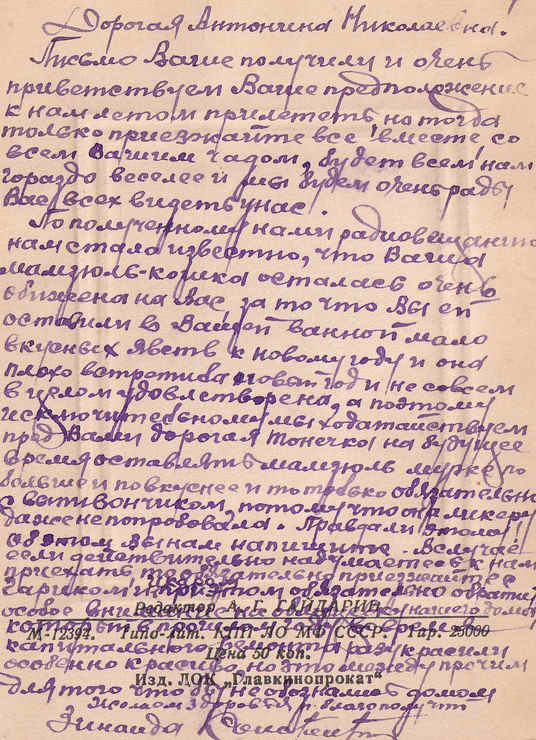 Дорогая Антонина Николаевна!
Письмо Ваше получили и очень
приветствуем Ваше предположение
к нам летом прилететь но тогда
только приезжайте все вместе со
всем Вашим чадом, будет всем нам
гораздо веселее и мы будем очень рады
Вас всех видеть у нас.
По полученному нами радиовещанию
нам стало известно, что Ваша
мамзюль-кошка осталась очень
обижена на Вас за то что Вы ей
оставили в Вашей ванной мало
вкусных явств к новому году и она
плохо встретила новый год и не совсем
в целом удовлетворена, а поэтому
исключительно мы ходатайствуем
пред Вами дорогая Тонечка на будущее
время оставлять мамзюль мурке по
больше и повкуснее и только обязательно
с выпивончиком, потому что она ликеру
даже не попробовала. Правда ли это
об этом Вы нам напишите. В случае
если действительно надумаете к нам
приехать то обязательно приезжайте с
Гариком и при этом обязательно обратите
Редактор А. Г.
особое нашего дома
М-12394. Типо-лит. КПИ ЛО МФ СССР. Тир. 25000
который в время
Цена 50 коп.
капитального раскрасили
Изд. ЛОК „Главкинопрокат“
особенно красиво, но это между прочим
для того чтобы не обознались домом
Желаем здоровья и благополучия
Зинаида